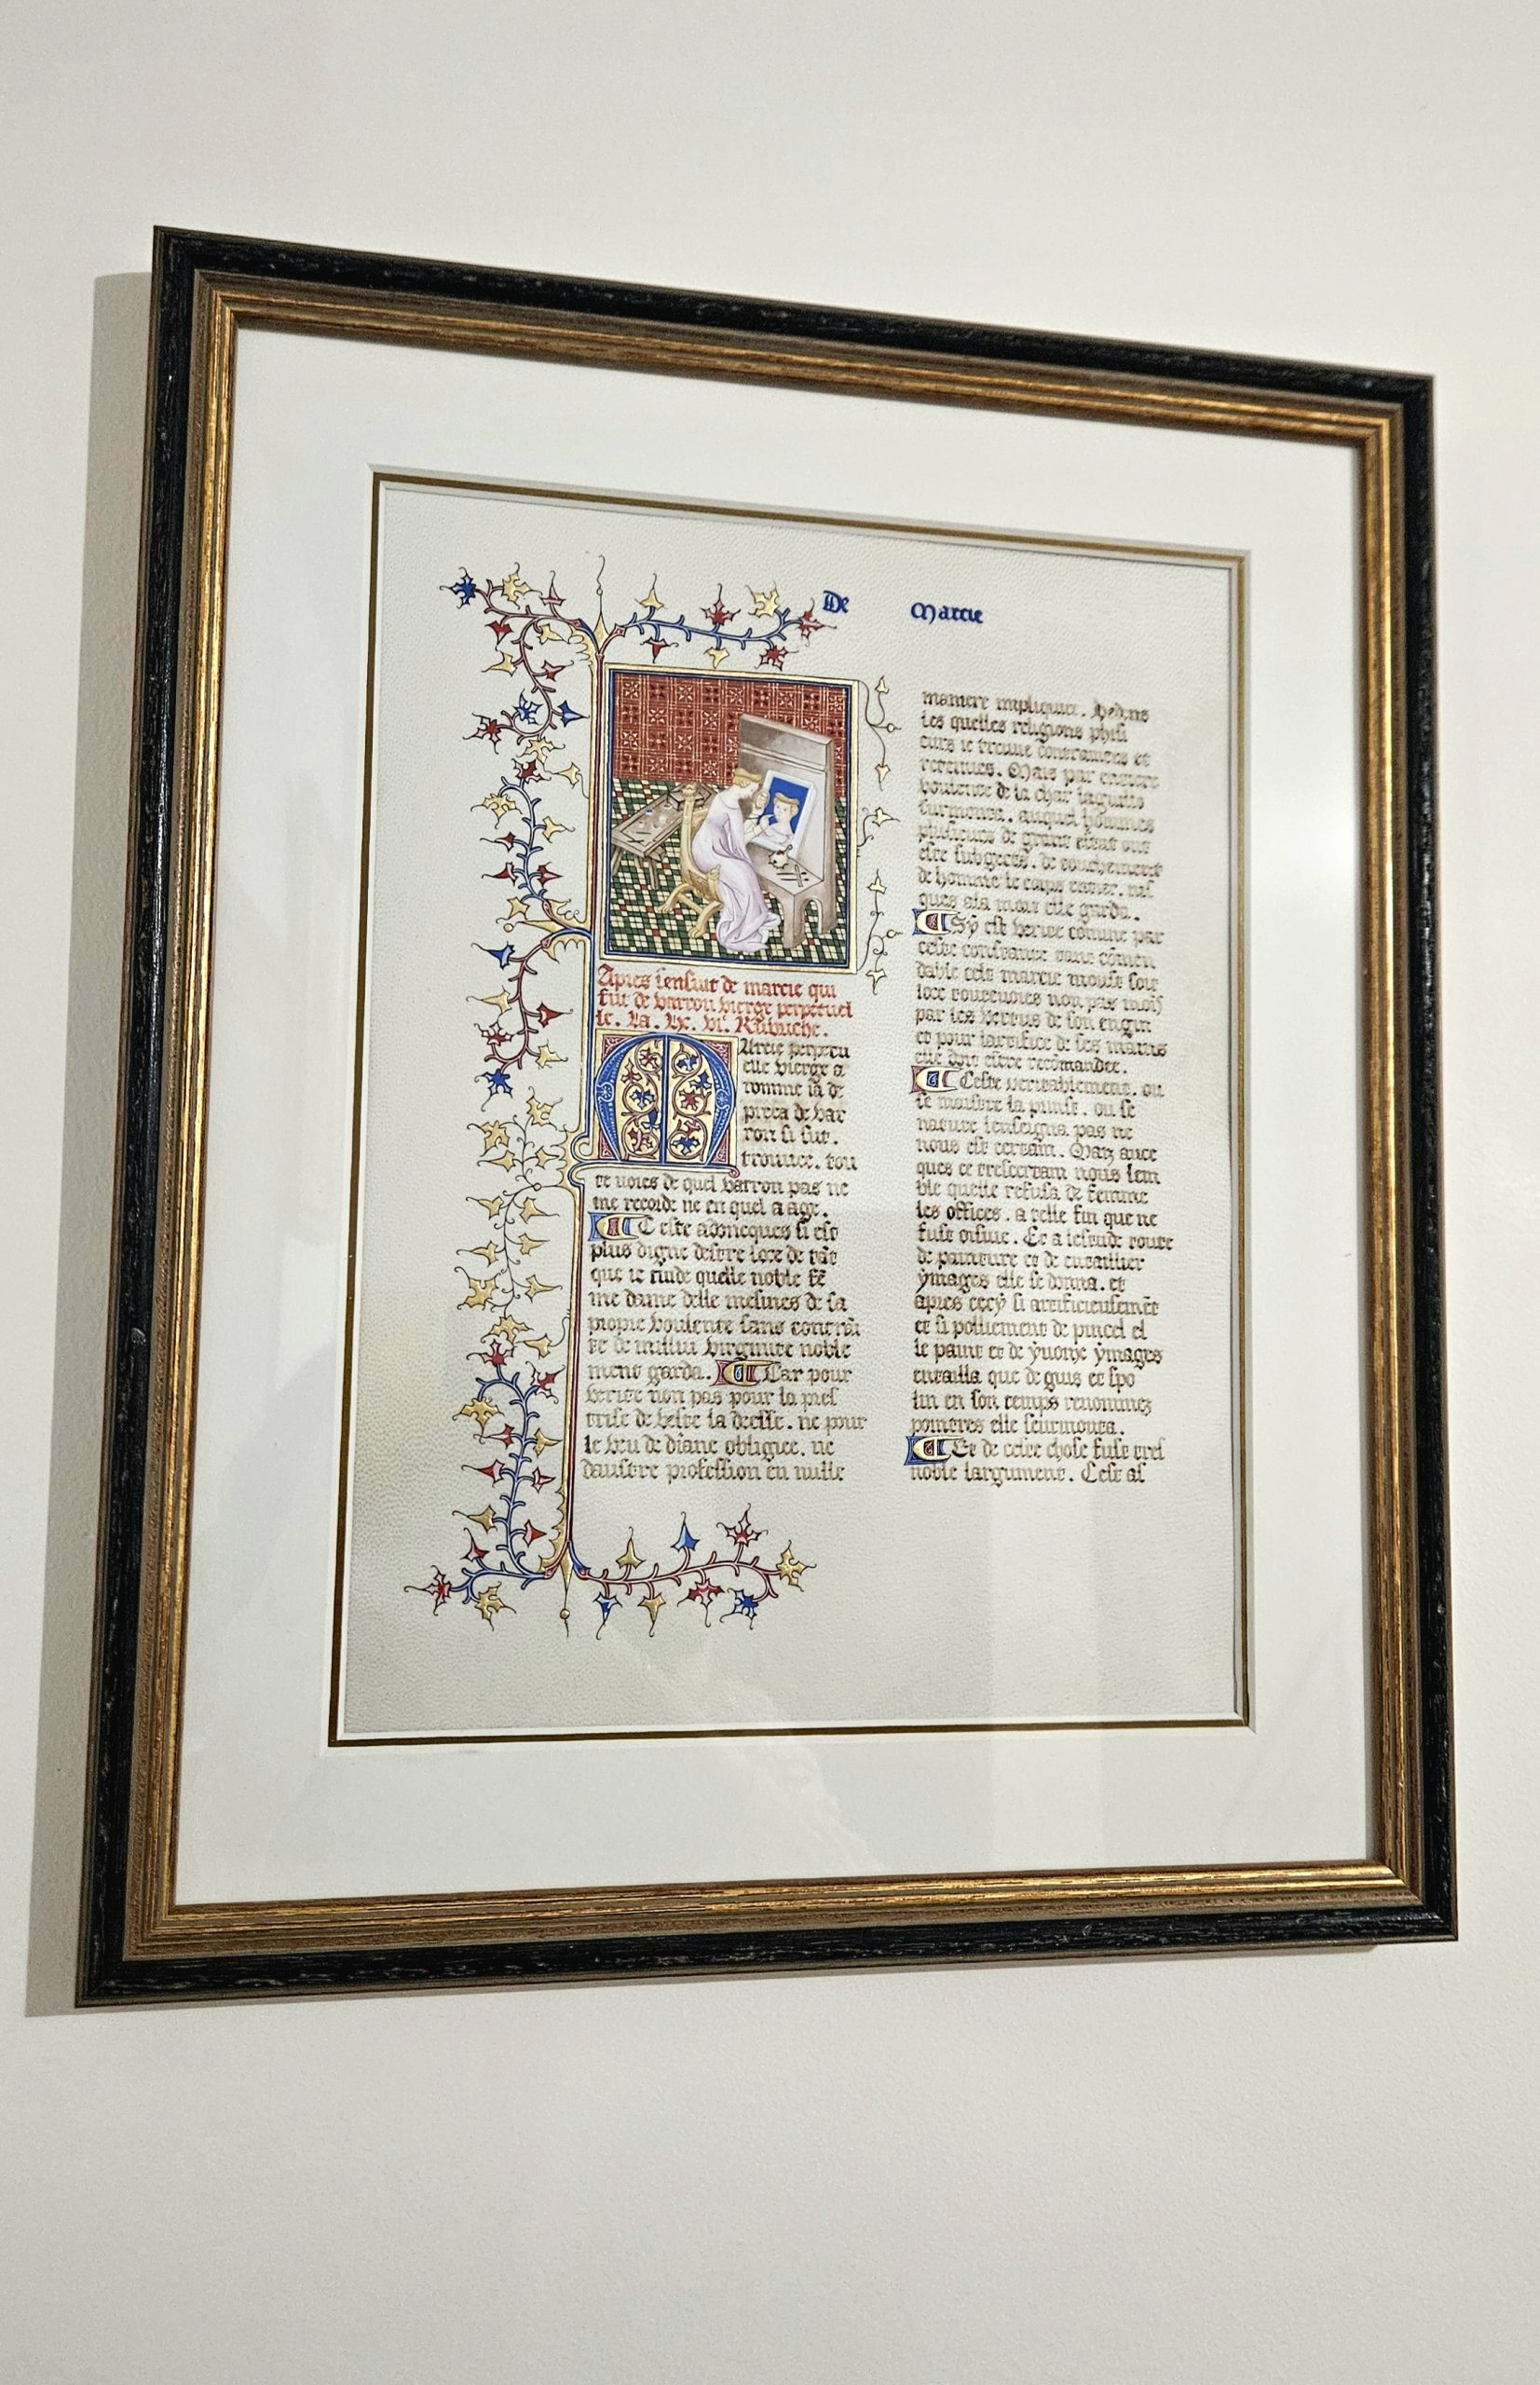 De Marcie
Apres sensuit de marcie qui
fut de varron vierge perpetuel
le. La. lx. vi. Rubriche.
Marcie perpetu
elle vierge a
romme ia de
pieca de var
ron si fut.
trouuee. tou
te uoies de quel varron pas ne
me recorde ne en quel aage.
Ceste adoncques si est
plus digne destre loee de tāt
que ie cuide quelle noble fē
me dame delle mesmes de sa
propre voulente sans contrai
te de nullui virginite noble
ment garda. Car pour
verite non pas pour la pres
trise de veste la deesse. ne pour
le veu de diane obligiee. ne
daustre profession en nulle
maniere impliquee.
les quelles religions plusi
eurs ie treuue contraintes et
retenues. Mais par
voulente de la char laquelle
surmonta. auquel hommes
plusieurs de grant estat ont
este subgects. de touchement
de homme le corps entier. ius
ques a la mort elle garda.
Sy est verite comme par
ceste constance dame cōmen
dable ceste marcie moust soit
loee toutenoies non pas mois
par les vertus de son engin
et pour lartifice de ses mains
elle doit estre recōmandee.
Ceste veritablement. ou
le maistre la prinst. ou se
nature lenseigna pas ne
nous est certain. Maiz auec
ques ce tresertain nous sem
ble quelle refusa de femme
les offices. a celle fin que ne
fust oisiue. Et a lestude toute
de painture et de entaillier
ymages elle se donna. et
apres cecy si artificieusemēt
et si poliement de pincel el
le paint et de yuoire ymages
entailla que de gius et spo
lin en son temps renommez
pointres elle seurmonta.
Et de ceste chose fust tres
noble largument. Cest as